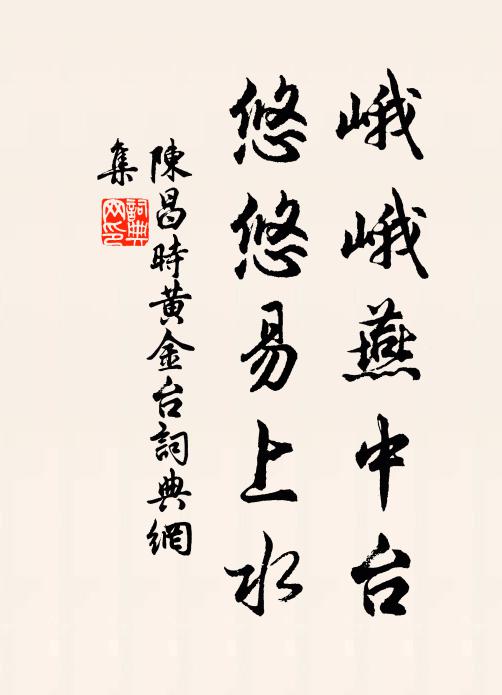 峨峨燕中台
悠悠易上水
陳昌時黄金台詞典網
集
詞典
网印